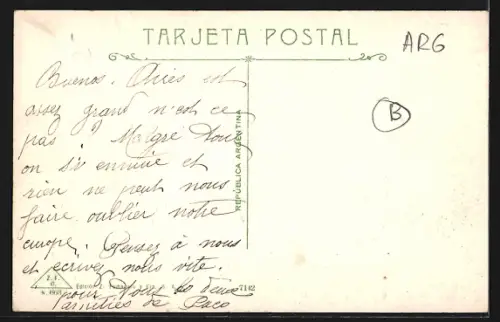 TARJETA POSTAL
ARG
B
Buenos. Aires est
assez grand n'est ce
pas? Malgré tout
on s'i ennuie et
rien ne peut nous
faire oublier notre
europe. Pensez à nous
et ecrivez nous vite.
pour vous les deux
amitiés de Paco
REPÚBLICA ARGENTINA
7142